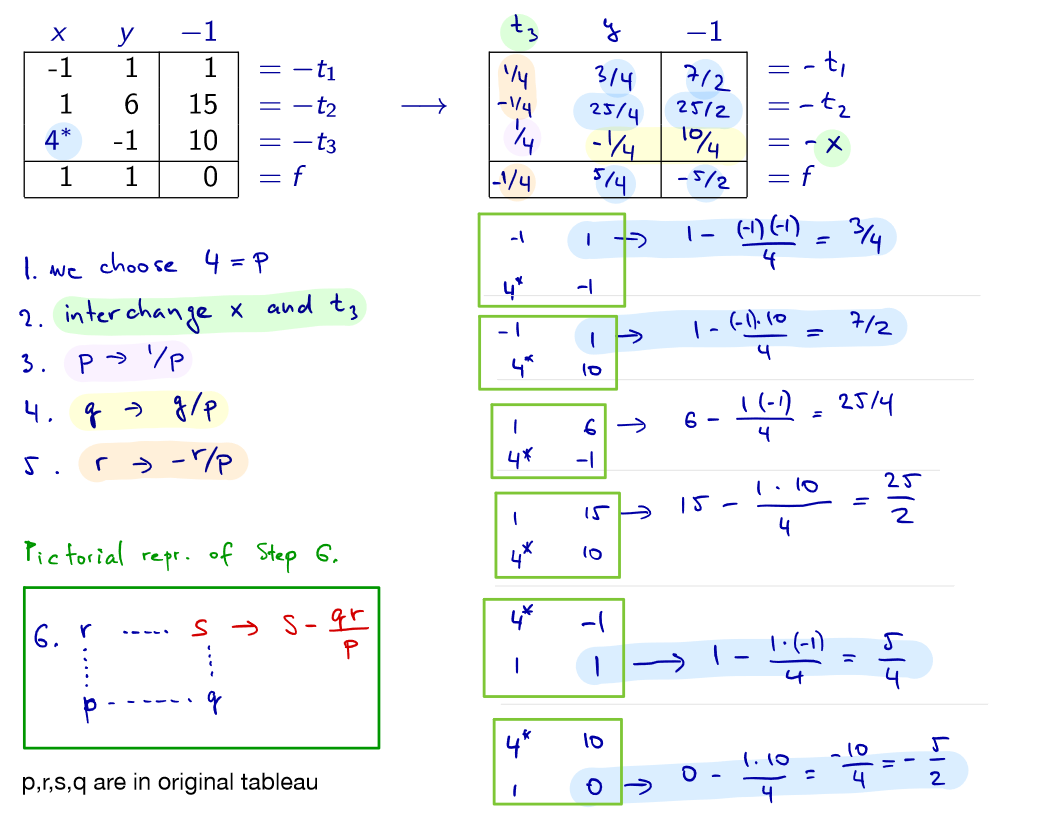 x y −1
-1 1 1 = −t₁
1 6 15 = −t₂
4* -1 10 = −t₃
1 1 0 = f
⟶
t₃ y −1
1/4 3/4 7/2 = - t₁
-1/4 25/4 25/2 = - t₂
1/4 -1/4 10/4 = - x
-1/4 5/4 -5/2 = f
1. we choose 4 = p
2. interchange x and t₃
3. p → 1/p
4. q → q/p
5. r → -r/p
Pictorial repr. of Step 6.
6. r ..... s → s - qr/p
p ------- q
p,r,s,q are in original tableau
-1 1 → 1 - (-1)(-1)/4 = 3/4
4* -1
-1 1 → 1 - (-1).10/4 = 7/2
4* 10
1 6 → 6 - 1(-1)/4 = 25/4
4* -1
1 15 → 15 - 1·10/4 = 25/2
4* 10
4* -1
1 1 → 1 - 1·(-1)/4 = 5/4
4* 10
1 0 → 0 - 1.10/4 = -10/4 = - 5/2